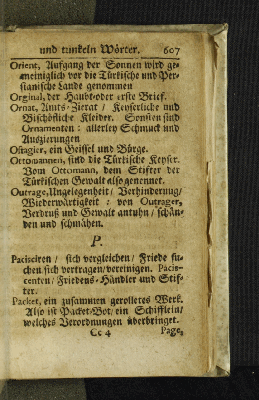 und tunckeln Wörter. 607
Orient, Aufgang der Sonnen wird ge-
meiniglich vor die Türkische und Per-
sianische Lande genommen
Orginal, der Haubt-oder erste Brief.
Ornat, Amts-Zierrat / Keyserliche und
Bischöfliche Kleider. Sonsten sind
Ornamenten: allerley Schmuck und
Auszierungen
Ostagier, ein Geissel und Bürge.
Ottomannen, sind die Türkische Keyser.
Vom Ottomann, dem Stifter der
Türkischen Gewalt also genennet.
Outrage, Ungelegenheit / Verhinderung /
Wiederwärtigkeit: von Outrager,
Verdruß und Gewalt antuhn / schän-
den und schmähen.
P.
Pacisciren / sich vergleichen / Friede su-
chen sich vertragen / vereinigen. Pacis-
centen / Friedens-Händler und Stif-
ter.
Packet, ein zusammen gerolletes Werk.
Also ist Packet-Bot / ein Schifflein /
welches Verordnungen überbringet.
Cc 4 Page,